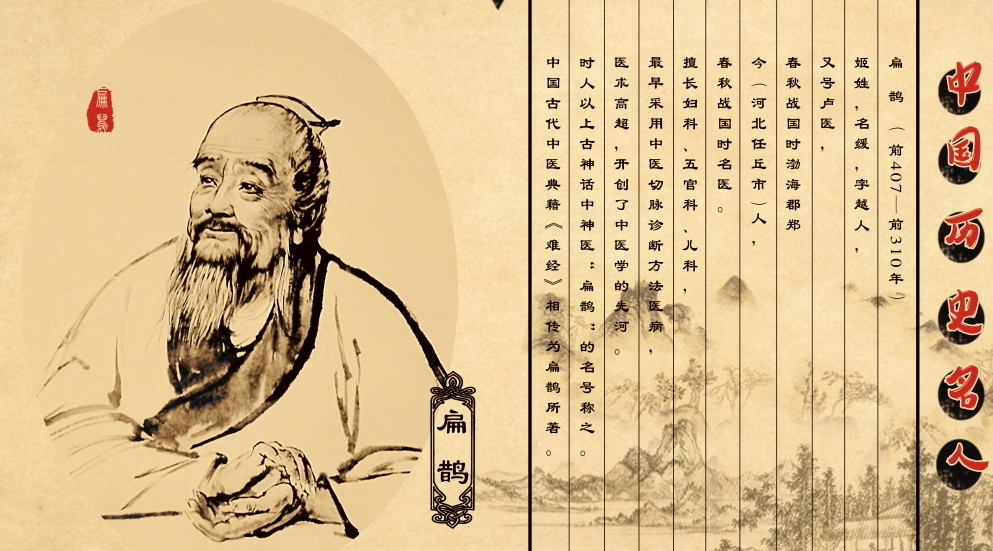 中国历史名人
扁 鹊 （前407—前310年）
姬姓，名缓，字越人，
又号卢医，
春秋战国时渤海郡郑
今（河北任丘市）人，
春秋战国时名医。
擅长妇科、五官科、儿科，
最早采用中医切脉诊断方法医病，
医术高超，开创了中医学的先河。
时人以上古神话中神医：扁鹊：的名号称之。
中国古代中医典籍《难经》相传为扁鹊所著。
扁鹊